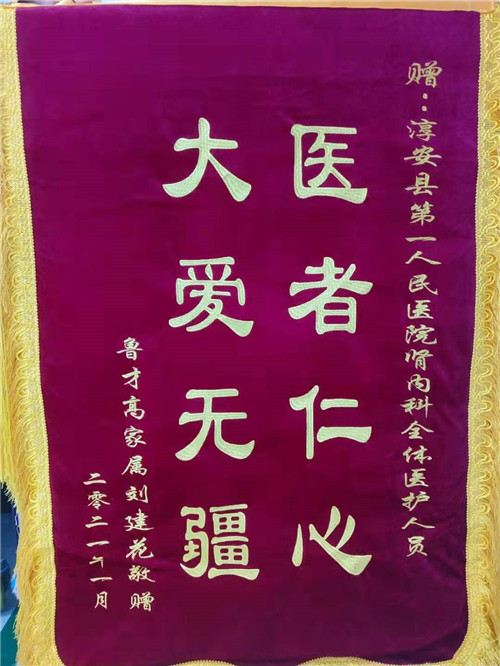 赠：淳安县第一人民医院肾内科全体医护人员
医者仁心
大爱无疆
鲁才高家属刘建花敬赠
二零二一年一月